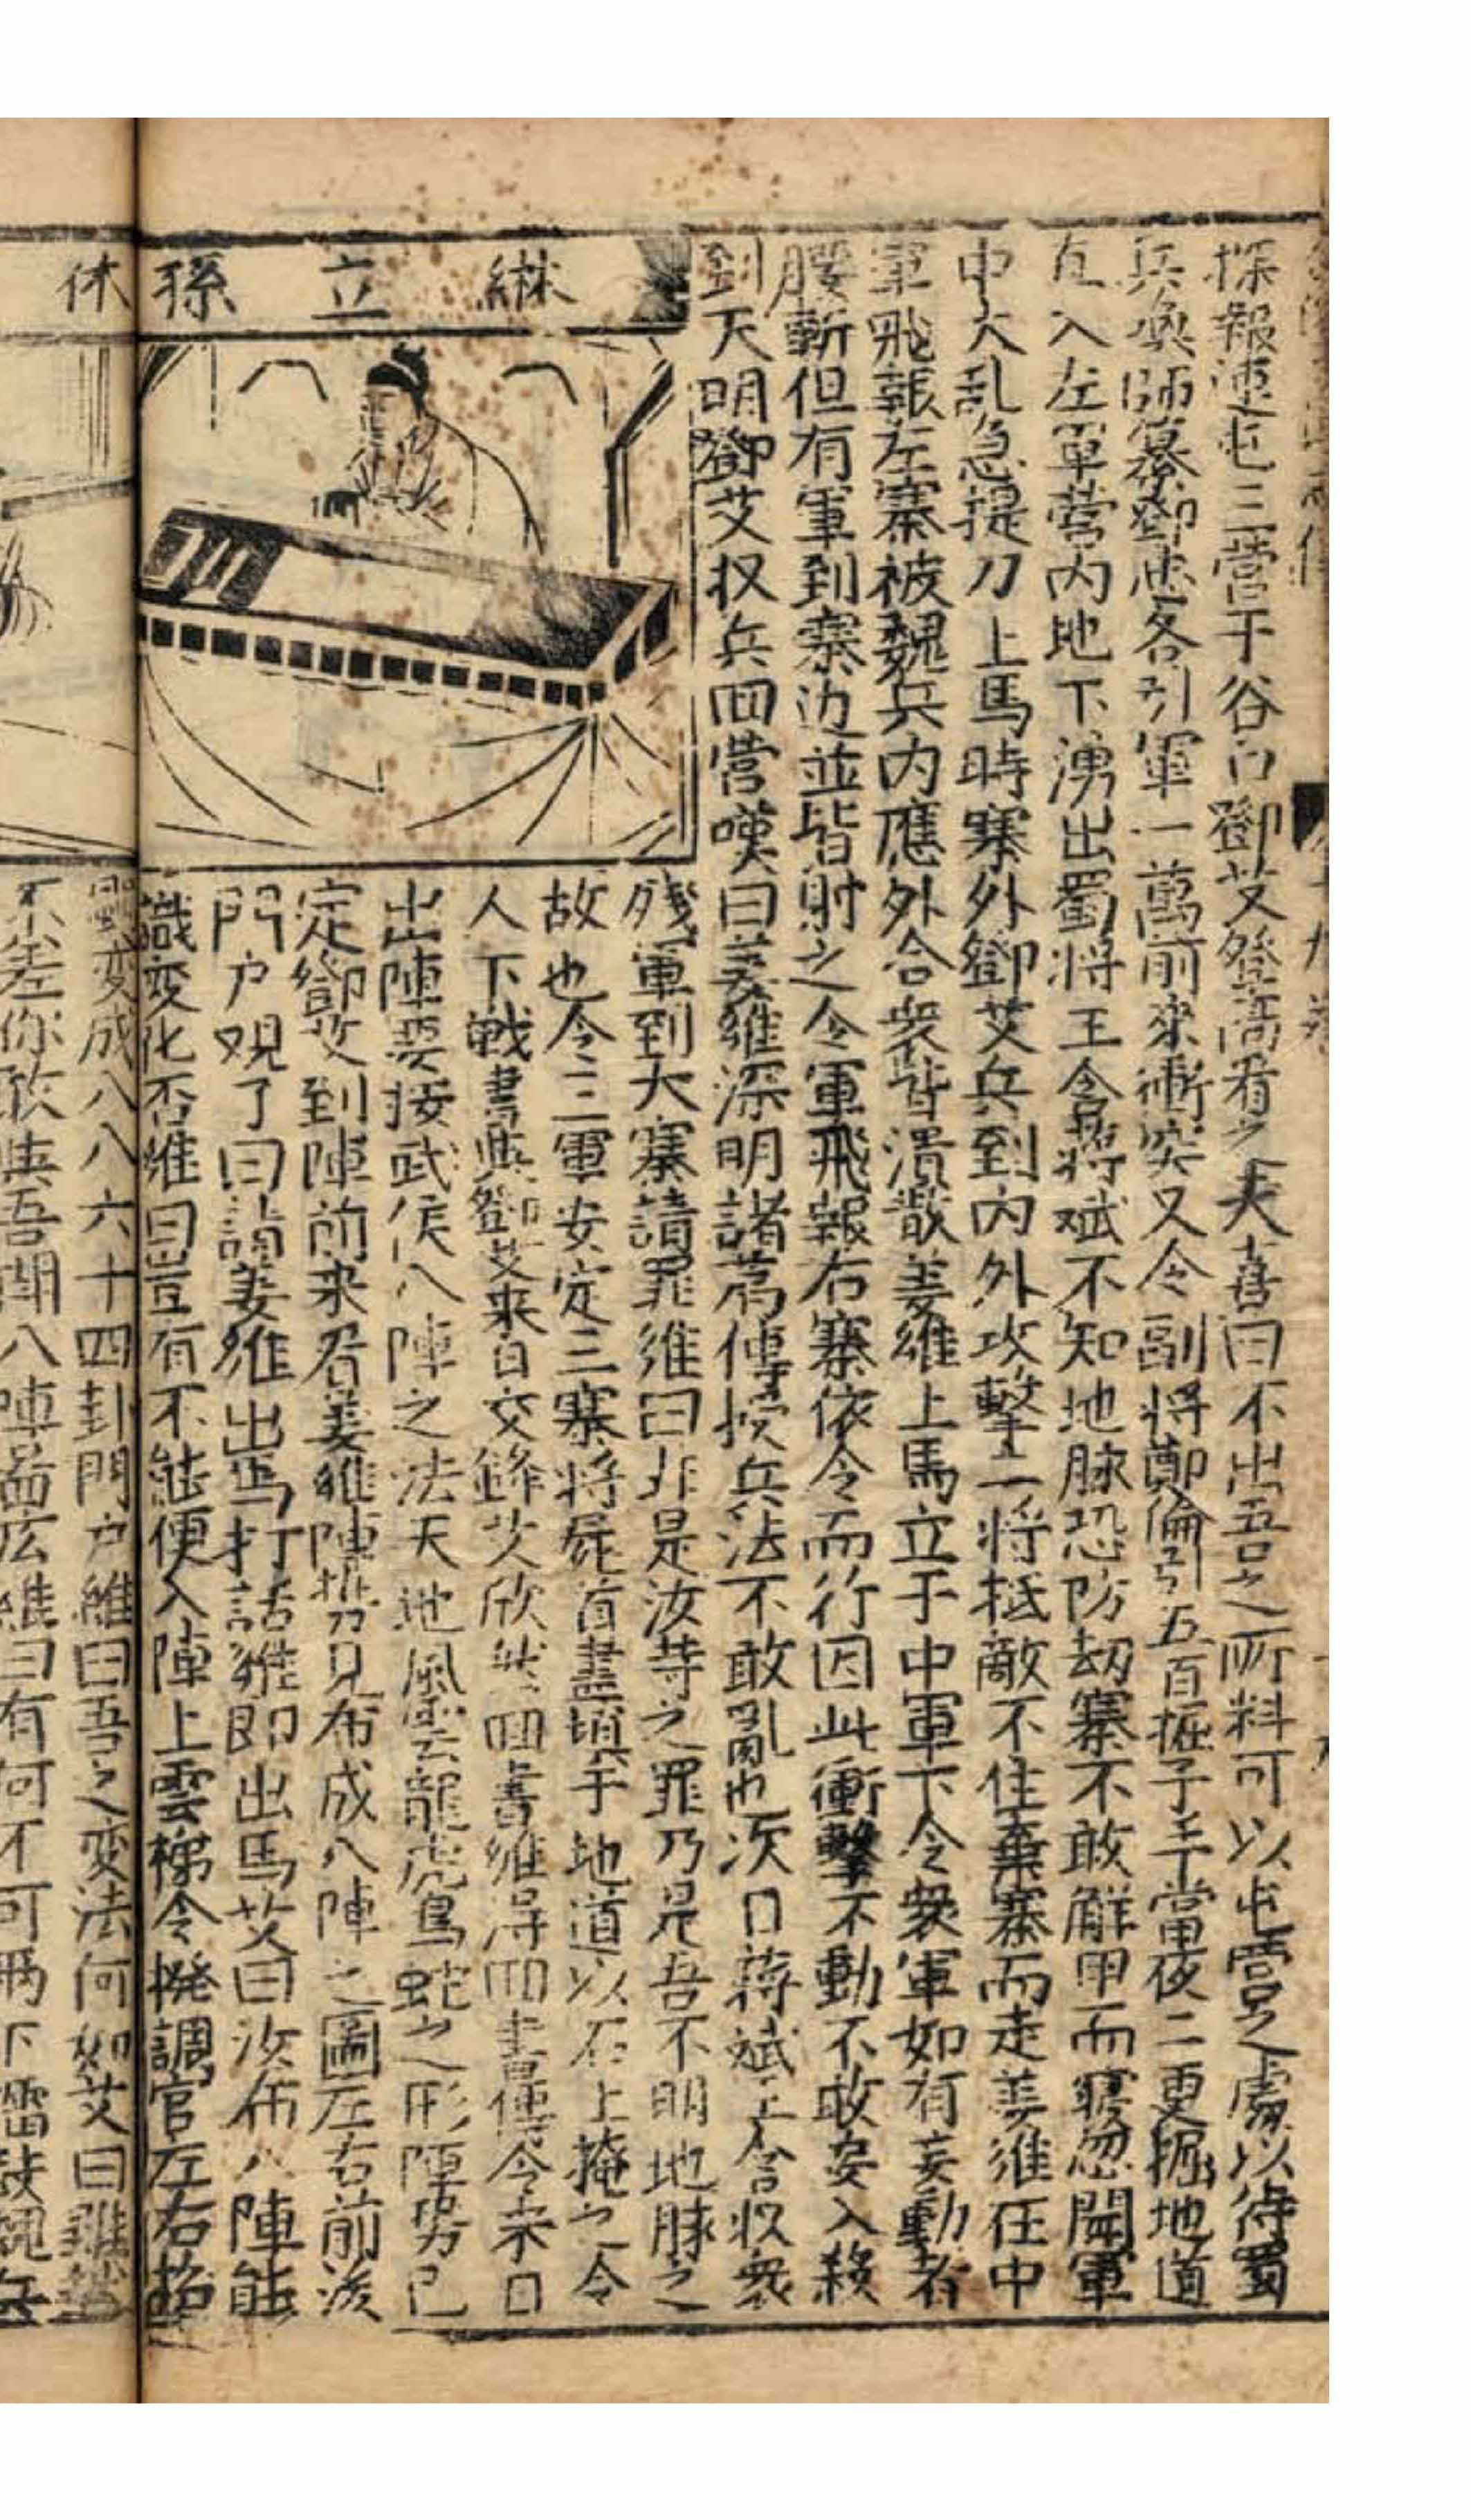 探報連屯三營于谷口鄧艾登高看之大喜曰不出吾之所料可以屯營之處以待蜀
兵喚師纂鄧忠各引軍一萬前來衝突又令副將鄭倫引五百掘子手當夜二更掘地道
直入左軍營内地下湧出蜀將王含蔣斌不知地脉恐防劫寨不敢觧甲而寢忽聞軍
中大乱急提刀上馬時寨外鄧艾兵到内外攻擊二将抵敵不住棄寨而走姜維在中
軍飛報左寨被魏兵内應外合衆皆潰散姜維上馬立于中軍下令衆軍如有妄動者
腰斬但有軍到寨边並皆射之令軍飛報右寨依令而行因此衝擊不動不敢妄入殺
到天明鄧艾収兵囬營嘆曰姜維深明諸葛傳授兵法不敢亂也次日蔣斌王含収衆
継立孫休
殘軍到大寨請罪維曰非是汝等之罪乃是吾不明地脉之
故也令三軍安定三寨将屍首盡填于地道以石上掩之令
人下戰書與鄧艾来日交鋒艾欣然囬書維得囬書傳令来日
出陣要按武侯八陣之法天地風雲龍虎鳥蛇之形陣势已
定鄧艾到陣前来看姜維陣势見布成八陣之圖左右前後
門户观了曰請姜維出馬打話維即出馬艾曰汝布八陣能
識变化否維曰豈有不能便入陣上雲梯令撥調官左右招
變成八八六十四卦門户維曰吾之变法何如艾曰雖然
不差你敢與吾閗八陣麽維曰有何不可两下